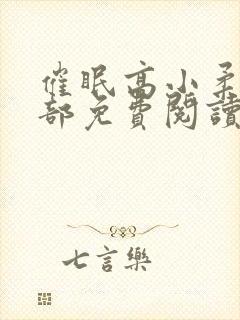 催眠高小柔
部免費閱讀
七言樂